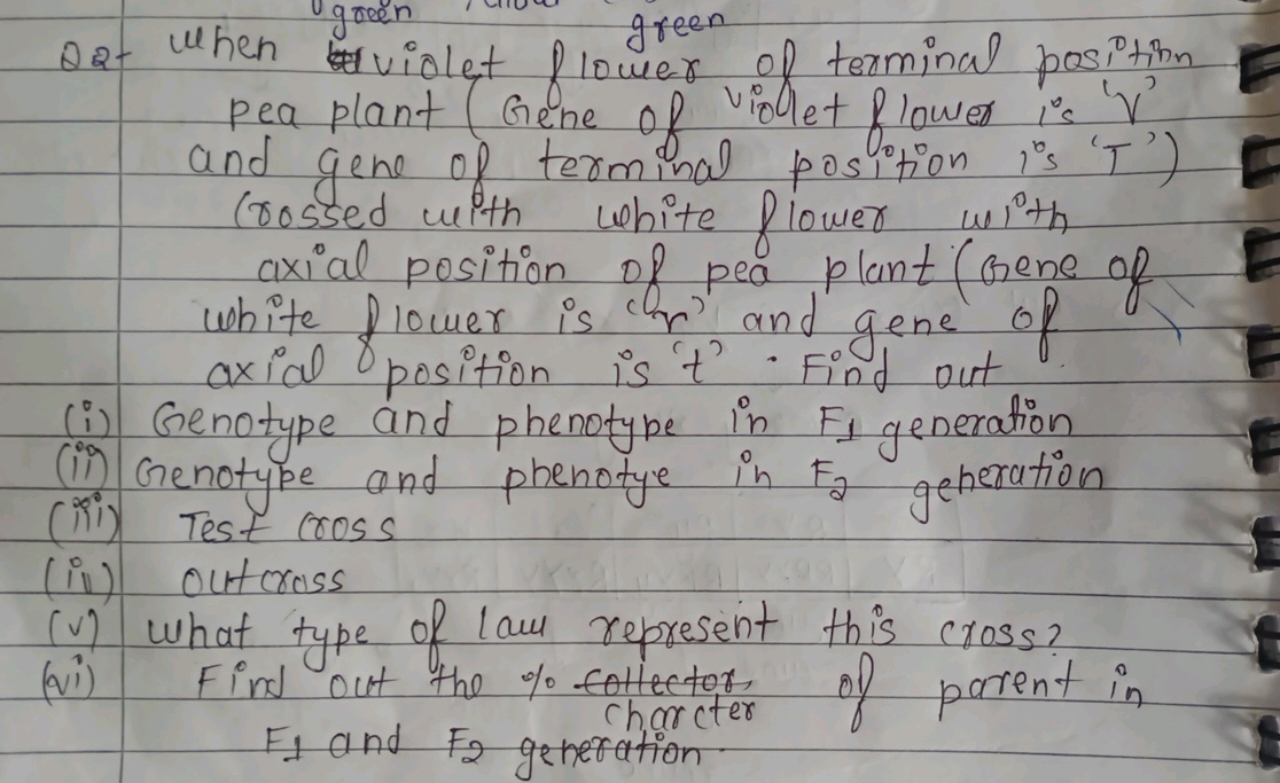 green green
Q2- when violet flower of terminal position
pea plant (Gene of violet flower is 'V'
and gene of terminal position is 'T')
Crossed with white flower with
axial position of pea plant (Gene of
white flower is 'v' and gene of
axial position is 't' . Find out
(i) Genotype and phenotype in F1 generation
(ii) Genotype and phenotye in F2 generation
(iii) Test cross
(iv) outcross
(v) what type of law represent this cross?
(vi) Find out the % collector, of parent in
charcter
F1 and F2 generation.